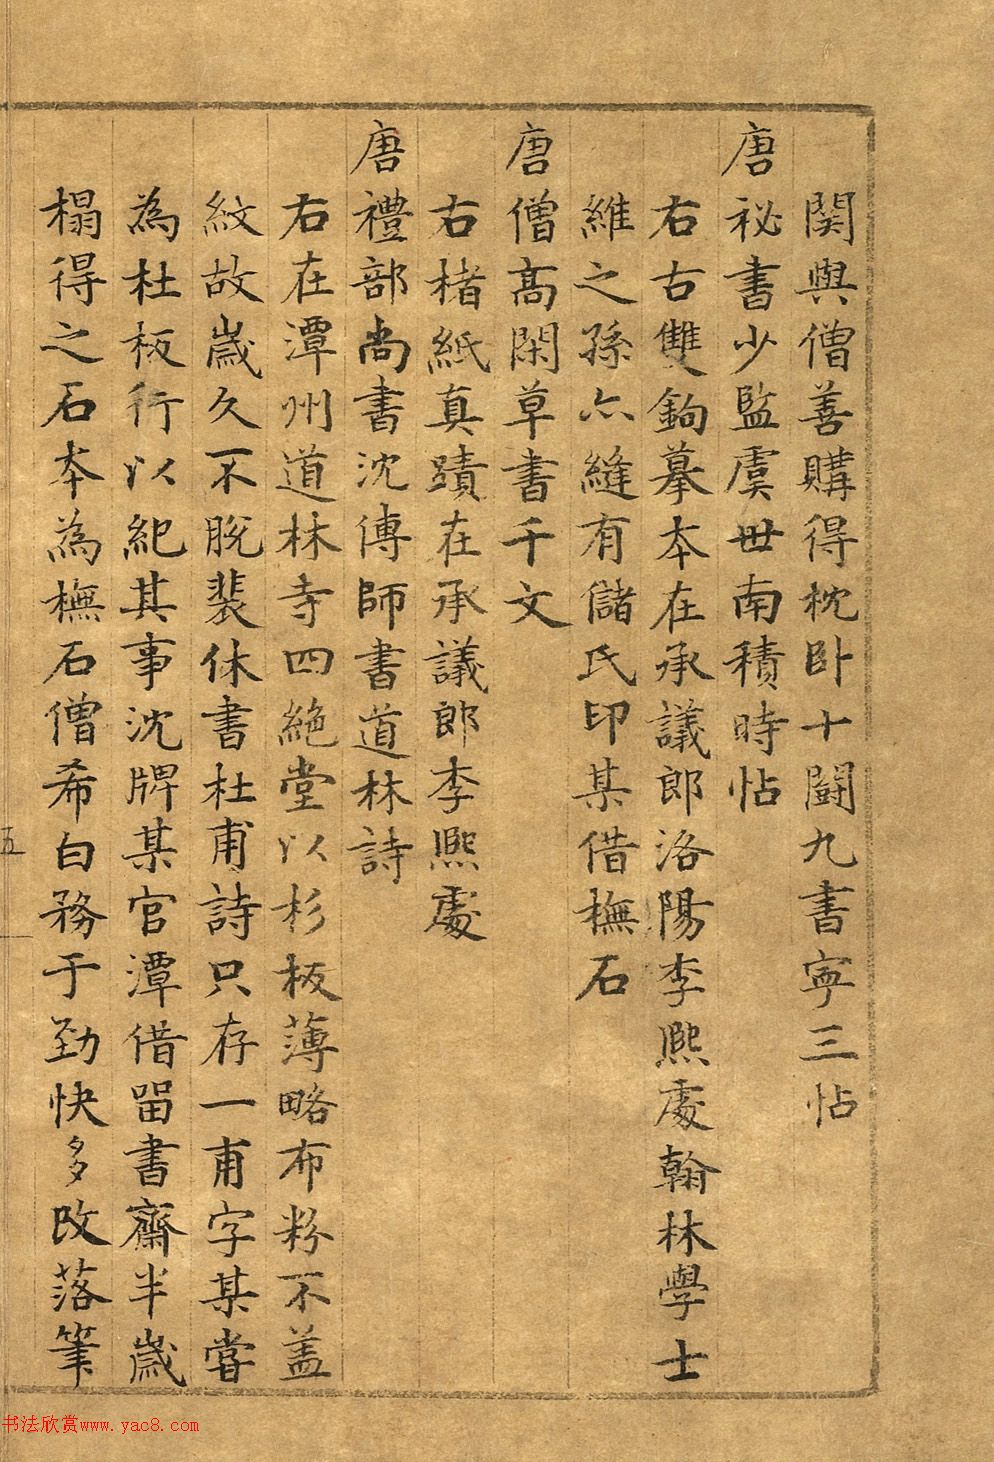 関與僧善購得枕卧十闘九書寧三帖
唐祕書少監虞世南積時帖
右古雙鉤摹本在承議郎洛陽李熙處翰林學士
維之孫六縫有儲氏印某借橅石
唐僧高閑草書千文
右楮紙真蹟在承議郎李熙處
唐禮部尚書沈傳師書道林詩
右在潭州道林寺四絶堂以杉板薄略布粉不盖
紋故歲久不脫裴休書杜甫詩只存一甫字某嘗
為杜板行以紀其事沈牌某官潭借留書齋半歲
榻得之石本為橅石僧希白務于勁快多改落筆
五
书法欣赏www.yac8.com